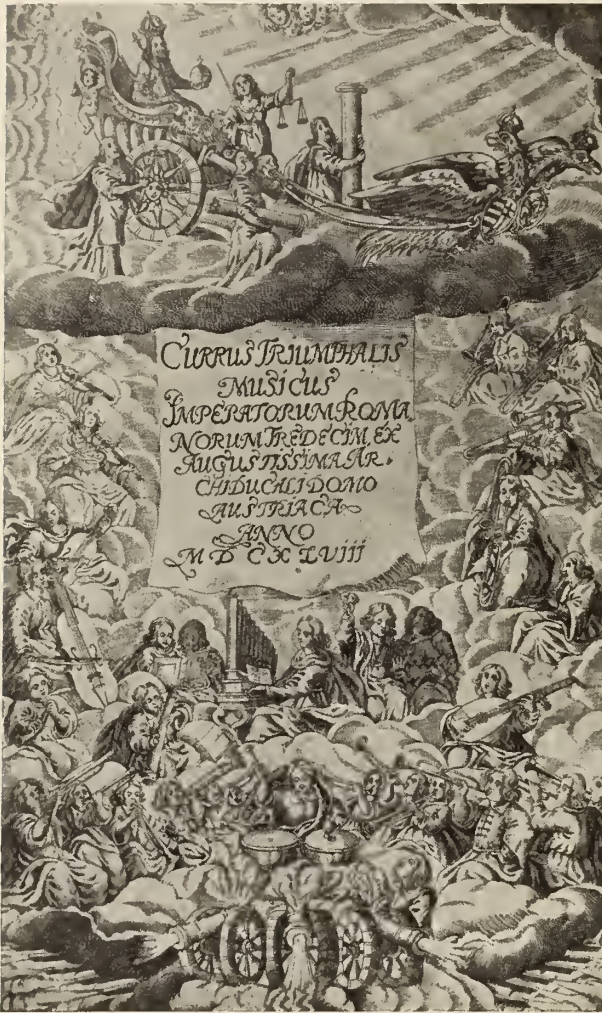 CURRUS TRIUMPHALIS
MUSICUS
IMPERATORUM ROMA
NORUM TREDECIM, EX
AUGUSTISSIMA AR-
CHIDUCALI DOMO
AUSTRIACA
ANNO
M D CXLViii